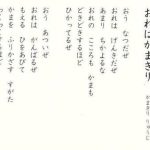 おれはかまきり
かまきり りゅうじ
おう なつだぜ
おれは げんきだぜ
あまり ちかよるな
おれの こころも かまも
どきどきするほど
ひかってるぜ
おう あついぜ
おれは がんばるぜ
もえる ひをあびて
かまを ふりかざす すがた